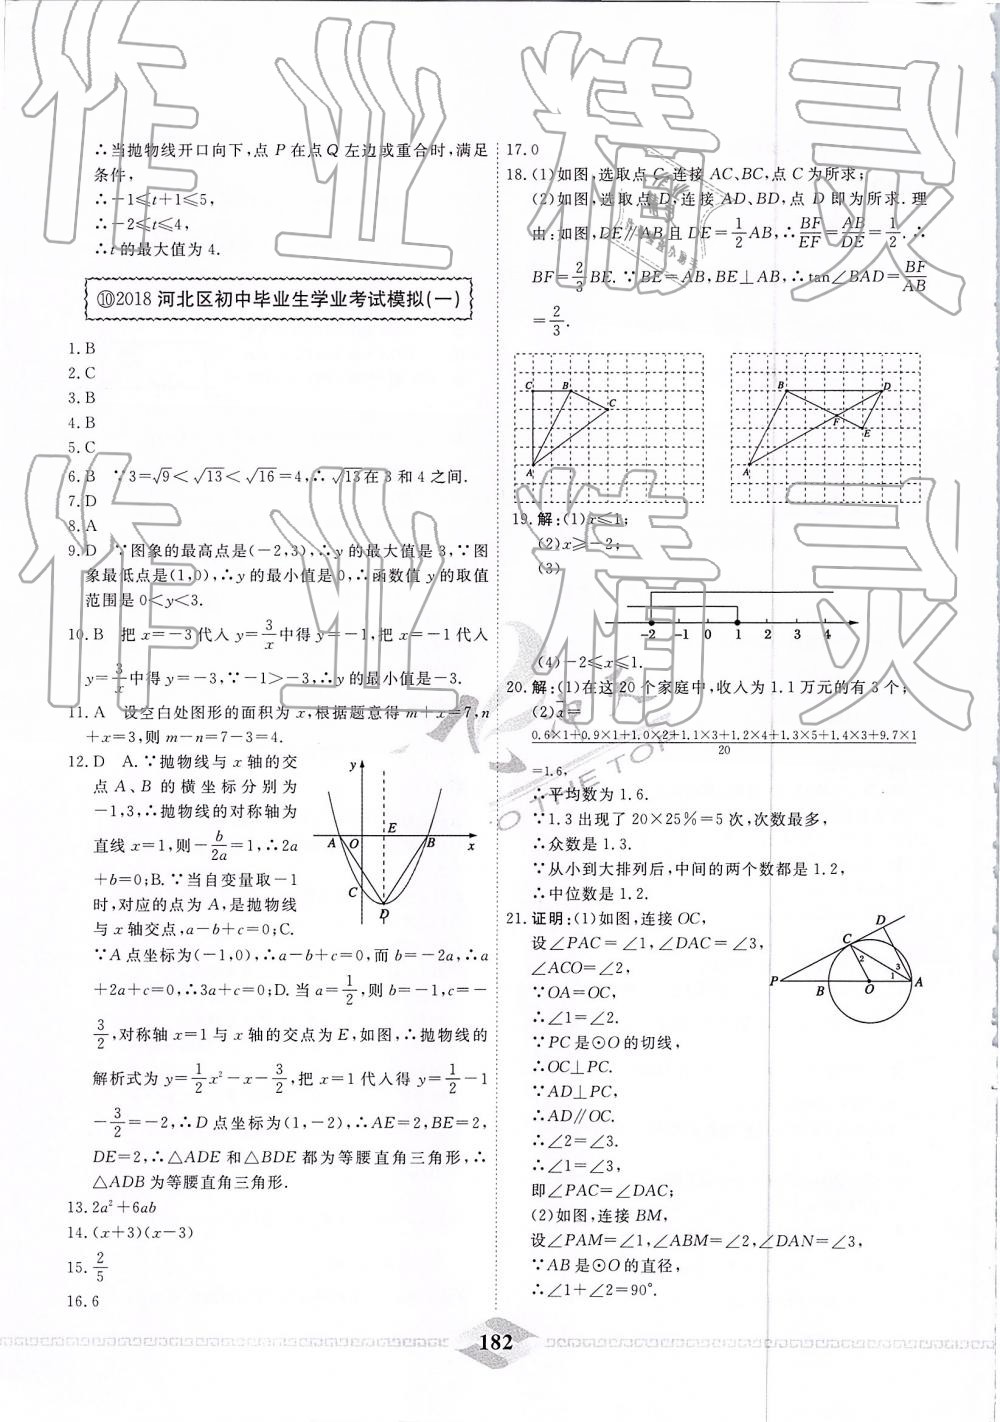 作业精灵
∴当抛物线开口向下,点 P 在点 Q 左边或重合时,满足
条件,
∴-1≤t+1≤5,
∴-2≤t≤4,
∴t 的最大值为 4.
⑩2018 河北区初中毕业生学业考试模拟(一)
1. B
2. C
3. B
4. B
5. C
6. B ∵3=√9<√13<√16=4,∴√13在 3 和 4 之间.
7. D
8. A
9. D ∵图象的最高点是(-2,3),∴y 的最大值是 3,∵图
象最低点是(1,0),∴y 的最小值是 0,∴函数值 y 的取值
范围是 0<y<3.
10. B 把 x=-3 代入 y=3/x 中得 y=-1,把 x=-1 代入
y=3/x 中得 y=-3,∵-1>-3,∴y 的最小值是-3.
11. A 设空白处图形的面积为 x,根据题意得 m+x=7,n
+x=3,则 m-n=7-3=4.
12. D A.∵抛物线与 x 轴的交
点 A、B 的横坐标分别为
-1,3,∴抛物线的对称轴为
直线 x=1,则-b/2a=1,∴2a
+b=0;B.∵当自变量取-1
时,对应的点为 A,是抛物线
与 x 轴交点,a-b+c=0;C.
∵A 点坐标为(-1,0),∴a-b+c=0,而 b=-2a,∴a
+2a+c=0,∴3a+c=0;D.当 a=1/2,则 b=-1,c=-
3/2,对称轴 x=1 与 x 轴的交点为 E,如图,∴抛物线的
解析式为 y=1/2x²-x-3/2,把 x=1 代入得 y=1/2-1
-3/2=-2,∴D 点坐标为(1,-2),∴AE=2,BE=2,
DE=2,∴△ADE 和△BDE 都为等腰直角三角形,∴
△ADB 为等腰直角三角形.
y
A O E B x
C
D
13. 2a²+6ab
14. (x+3)(x-3)
15. 2/5
16. 6
17. 0
18. (1)如图,选取点 C,连接 AC、BC,点 C 为所求;
(2)如图,选取点 D,连接 AD、BD,点 D 即为所求.理
由:如图,DE∥AB 且 DE=1/2AB,∴BF/EF=AB/DE=1/2.∴
BF=2/3BE.∵BE=AB,BE⊥AB,∴tan∠BAD=BF/AB
=2/3.
C B
C
A
B D
F
E
A
19. 解:(1)x≤1;
(2)x≥-2;
(3)
-2 -1 0 1 2 3 4
(4)-2≤x≤1.
20. 解:(1)在这 20 个家庭中,收入为 1.1 万元的有 3 个;
(2)x̄=
0.6×1+0.9×1+1.0×2+1.1×3+1.2×4+1.3×5+1.4×3+9.7×1
20
=1.6,
∴平均数为 1.6.
∵1.3 出现了 20×25%=5 次,次数最多,
∴众数是 1.3.
∵从小到大排列后,中间的两个数都是 1.2,
∴中位数是 1.2.
21. 证明:(1)如图,连接 OC,
设∠PAC=∠1,∠DAC=∠3,
∠ACO=∠2,
∵OA=OC,
∴∠1=∠2.
∵PC 是⊙O 的切线,
∴OC⊥PC.
∵AD⊥PC,
∴AD∥OC.
∴∠2=∠3.
∴∠1=∠3,
即∠PAC=∠DAC;
D
C
2 3
1
P B O A
(2)如图,连接 BM,
设∠PAM=∠1,∠ABM=∠2,∠DAN=∠3,
∵AB 是⊙O 的直径,
∴∠1+∠2=90°.
182
作业精灵